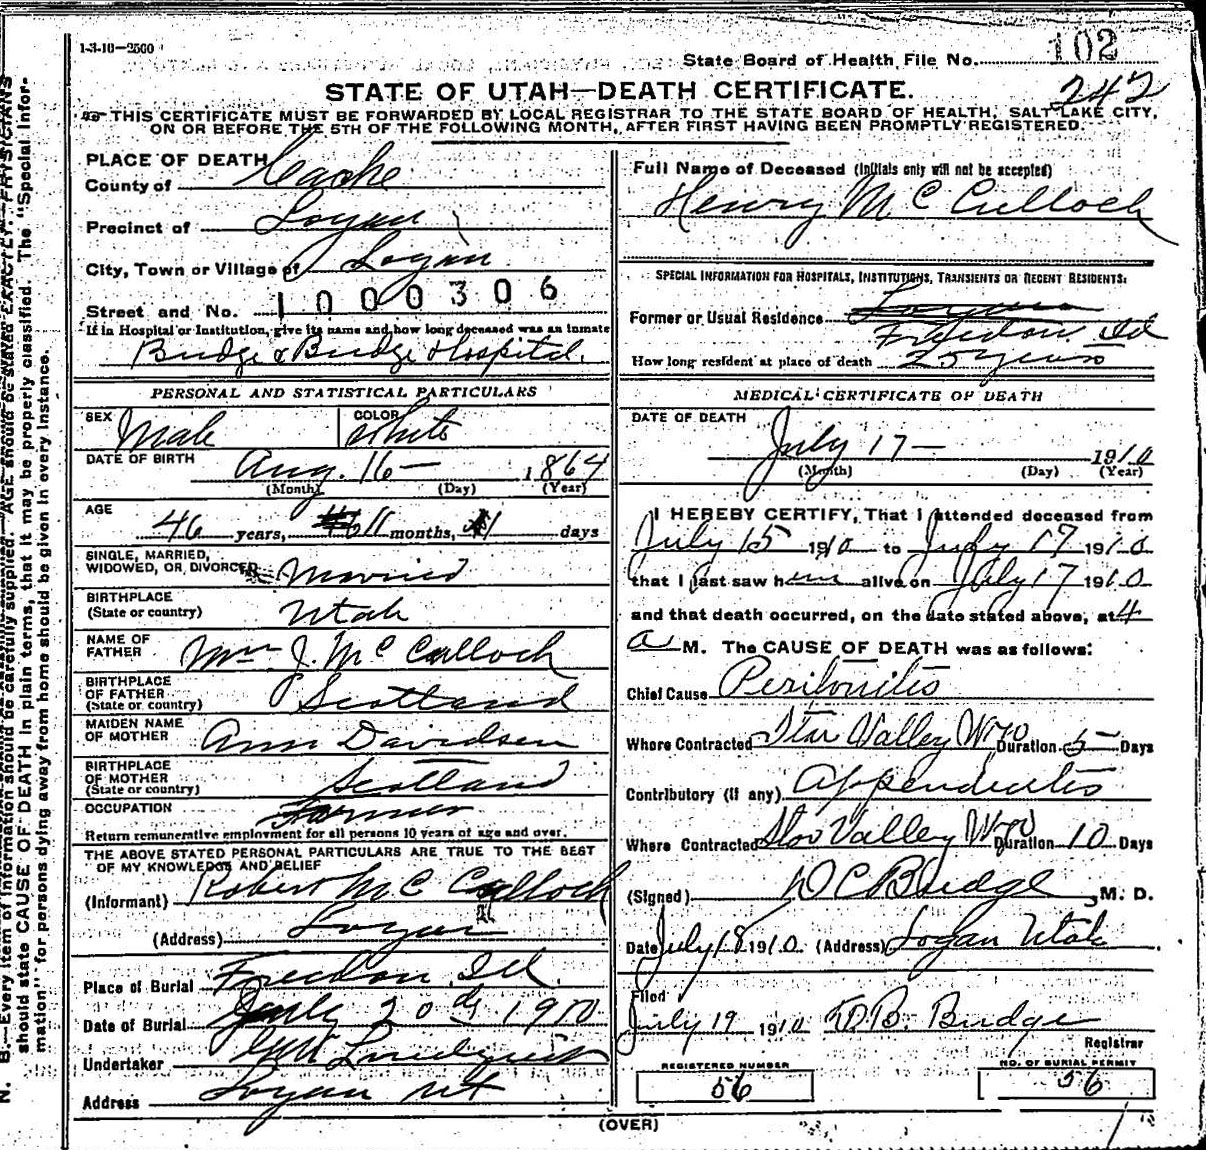 1-3-10—2500
State Board of Health File No. 102
STATE OF UTAH—DEATH CERTIFICATE.
242
THIS CERTIFICATE MUST BE FORWARDED BY LOCAL REGISTRAR TO THE STATE BOARD OF HEALTH, SALT LAKE CITY,
ON OR BEFORE THE 5TH OF THE FOLLOWING MONTH, AFTER FIRST HAVING BEEN PROMPTLY REGISTERED.
PLACE OF DEATH
County of Cache
Precinct of Logan
City, Town or Village of Logan
Street and No. 1000306
If in Hospital or Institution, give its name and how long deceased was an inmate
Budge & Budge Hospital.
PERSONAL AND STATISTICAL PARTICULARS
SEX Male COLOR White
DATE OF BIRTH Aug. 16— 1864
(Month) (Day) (Year)
AGE
46 years, 11 months, 1 days
SINGLE, MARRIED,
WIDOWED, OR DIVORCED Married
BIRTHPLACE
(State or country) Utah
NAME OF
FATHER Wm J. McCulloch
BIRTHPLACE
OF FATHER
(State or country) Scotland
MAIDEN NAME
OF MOTHER Ann Davidsen
BIRTHPLACE
OF MOTHER
(State or country) Scotland
OCCUPATION Farmer
Return remunerative employment for all persons 10 years of age and over.
THE ABOVE STATED PERSONAL PARTICULARS ARE TRUE TO THE BEST
OF MY KNOWLEDGE AND BELIEF
(Informant) Robert McCulloch
(Address) Logan
Place of Burial Freedom. Id.
Date of Burial July 20th 1910
Undertaker Lindquist
Address Logan Ut
Full Name of Deceased (Initials only will not be accepted)
Henry McCulloch
SPECIAL INFORMATION FOR HOSPITALS, INSTITUTIONS, TRANSIENTS OR RECENT RESIDENTS:
Logan
Former or Usual Residence Freedom. Id
How long resident at place of death 25 years
MEDICAL CERTIFICATE OF DEATH
DATE OF DEATH
July 17— 1910
(Month) (Day) (Year)
I HEREBY CERTIFY, That I attended deceased from
July 15 1910 to July 17 1910
that I last saw him alive on July 17 1910
and that death occurred, on the date stated above, at 4
a M. The CAUSE OF DEATH was as follows:
Chief Cause Peritonitis
Where Contracted Star Valley Wyo Duration 5 Days
Contributory (if any) Appendicitis
Where Contracted Star Valley Wyo Duration 10 Days
(Signed) D C Budge M. D.
Date July 18 1910 (Address) Logan Utah
Filed
July 19 1910 Budge
Registrar
REGISTERED NUMBER
56
NO. OF BURIAL PERMIT
56
(OVER)
N. B.—Every item of information should be carefully supplied. AGE should be stated EXACTLY. PHYSICIANS
should state CAUSE OF DEATH in plain terms, that it may be properly classified. The "Special Infor-
mation" for persons dying away from home should be given in every instance.